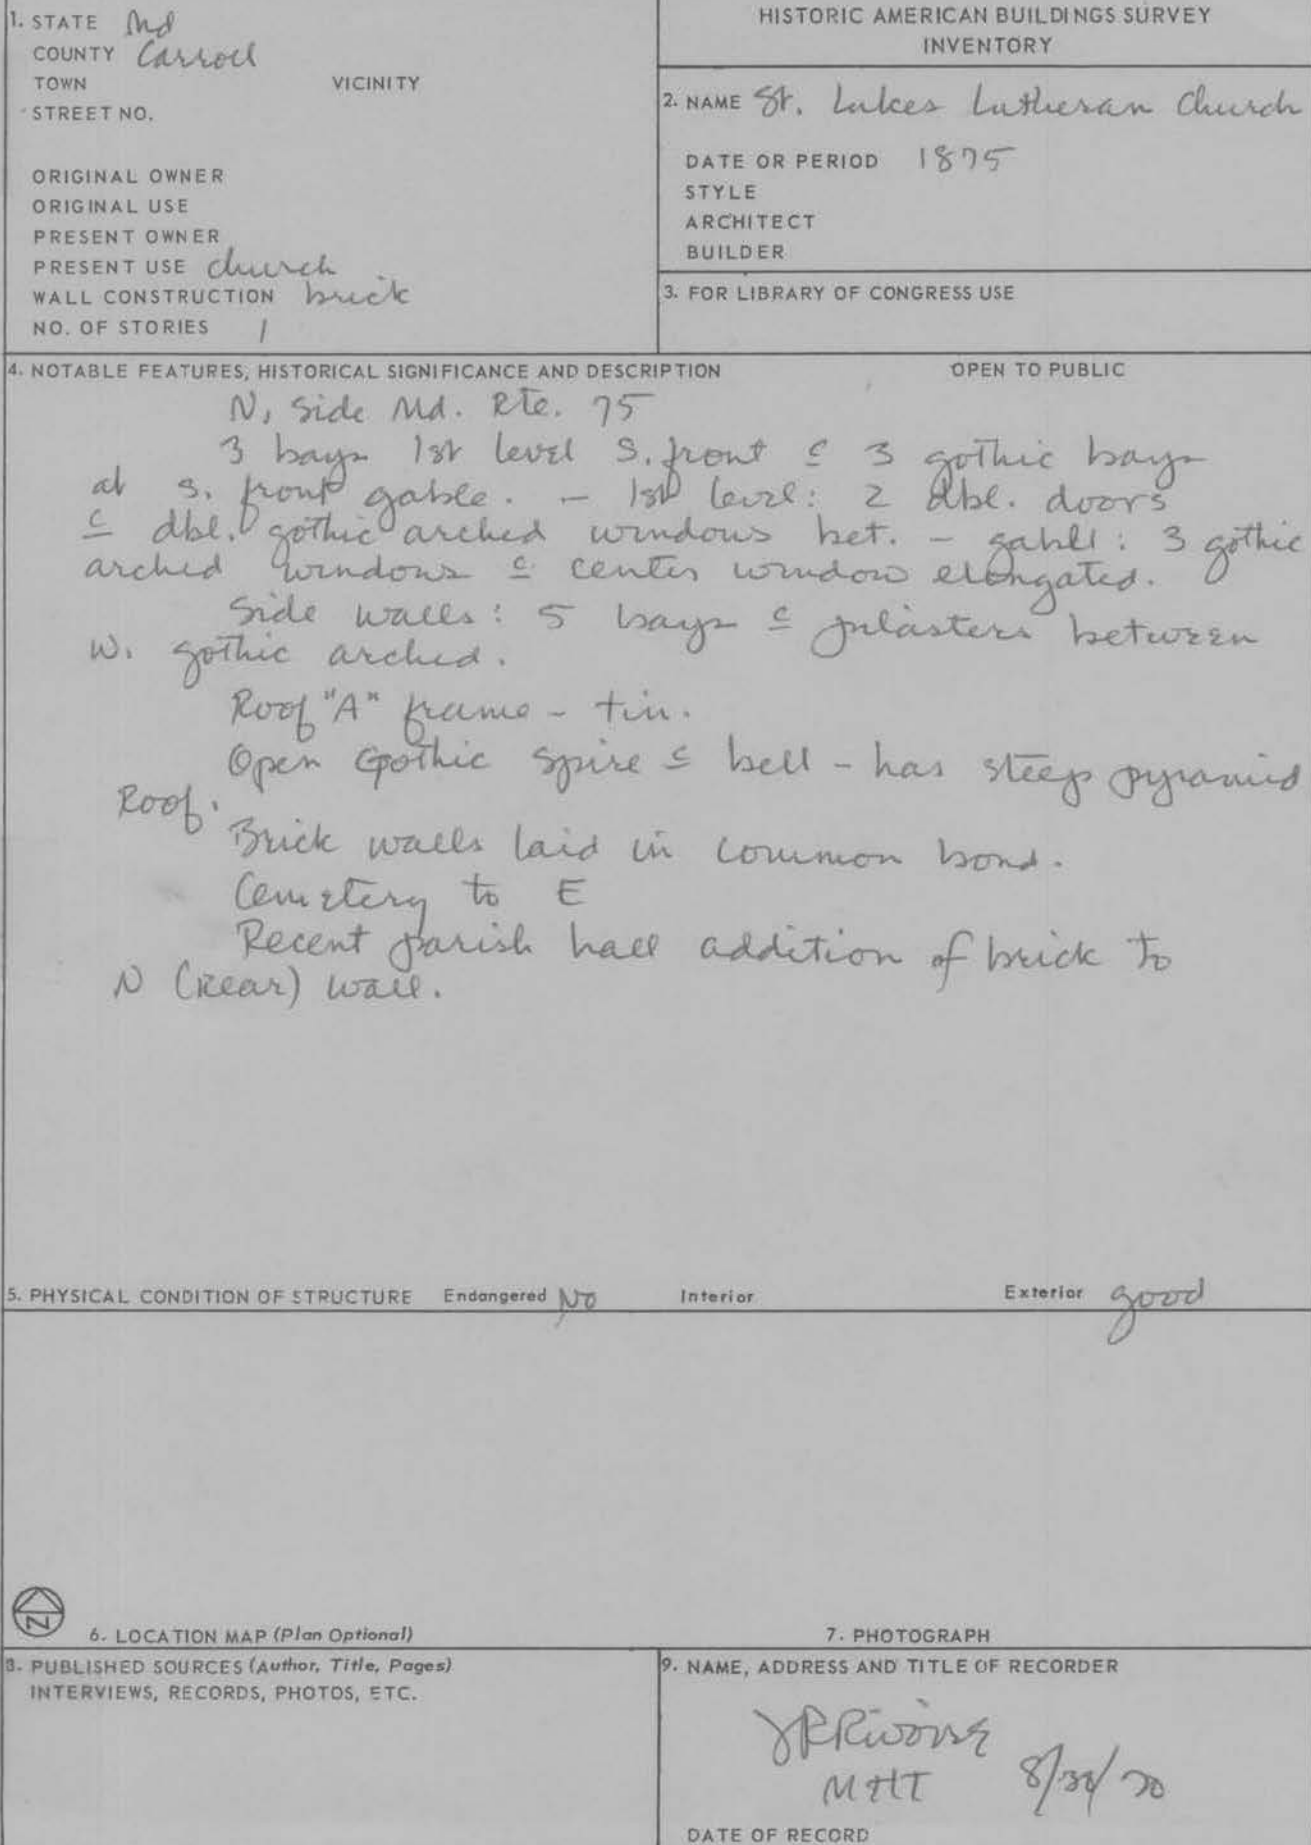 1. STATE Md
COUNTY Carroll
TOWN VICINITY
STREET NO.
ORIGINAL OWNER
ORIGINAL USE
PRESENT OWNER
PRESENT USE church
WALL CONSTRUCTION brick
NO. OF STORIES 1
HISTORIC AMERICAN BUILDINGS SURVEY
INVENTORY
2. NAME St. Lukes Lutheran Church
DATE OR PERIOD 1875
STYLE
ARCHITECT
BUILDER
3. FOR LIBRARY OF CONGRESS USE
4. NOTABLE FEATURES, HISTORICAL SIGNIFICANCE AND DESCRIPTION OPEN TO PUBLIC
N. Side Md. Rte. 75
3 bays 1st level S. front c 3 gothic bays
at s. front gable. - 1st level: 2 dbl. doors
c dbl. gothic arched windows bet. - gable: 3 gothic
arched windows c center window elongated.
Side walls: 5 bays c pilasters between
W. gothic arched.
Roof "A" frame - tin.
Open Gothic Spire c bell - has steep pyramid
Roof.
Brick walls laid in common bond.
Cemetery to E
Recent parish hall addition of brick to
N (Rear) wall.
5. PHYSICAL CONDITION OF STRUCTURE Endangered No Interior Exterior good
N
6. LOCATION MAP (Plan Optional)
7. PHOTOGRAPH
8. PUBLISHED SOURCES (Author, Title, Pages)
INTERVIEWS, RECORDS, PHOTOS, ETC.
9. NAME, ADDRESS AND TITLE OF RECORDER
MHT
DATE OF RECORD